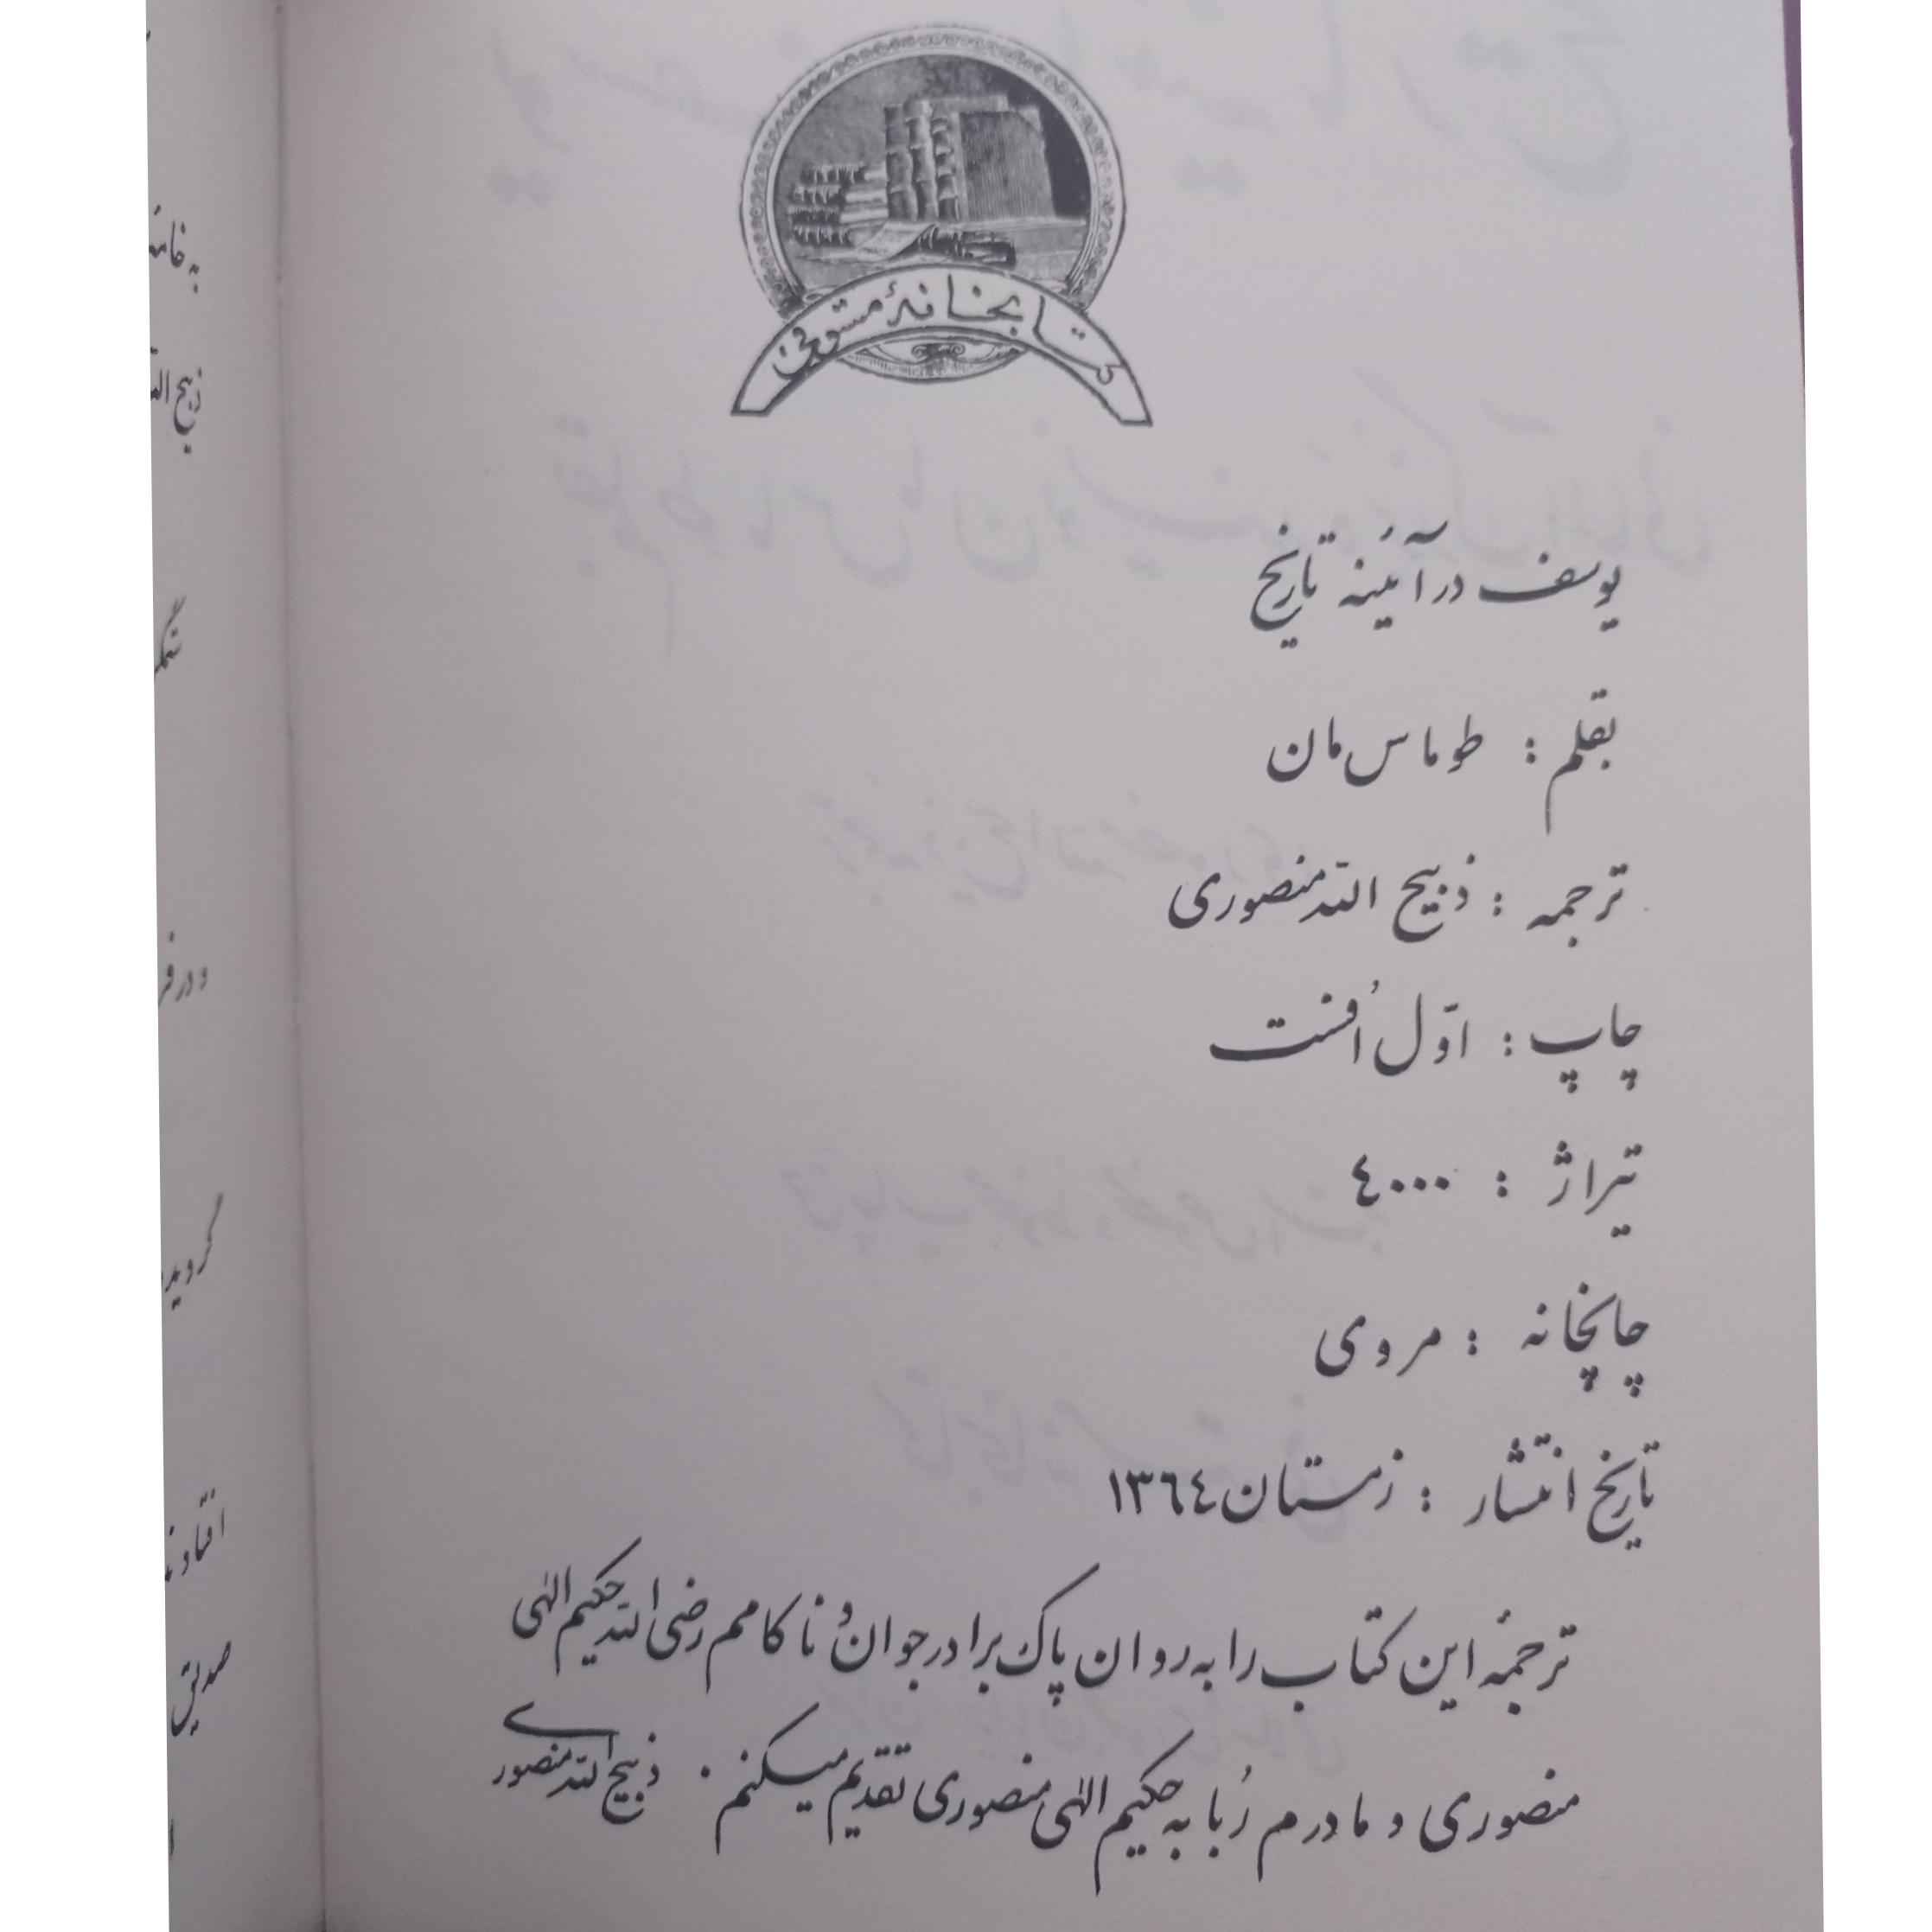 کتابخانهٔ مستوفی
یوسف در آئینه تاریخ
بقلم : طوماس مان
ترجمه : ذبیح الله منصوری
چاپ : اوّل اُفست
تیراژ : ٤٠٠٠
چاپخانه : مروی
تاریخ انتشار : زمستان ١٣٦٤
ترجمهٔ این کتاب را به روان پاک برادر جوان و ناکامم رضی الله حکیم الهی
منصوری و مادرم رُبابه حکیم الهی منصوری تقدیم میکنم . ذبیح الله منصوری
به خامهٔ
ذبیح الله
و در
گردیده
صدیق